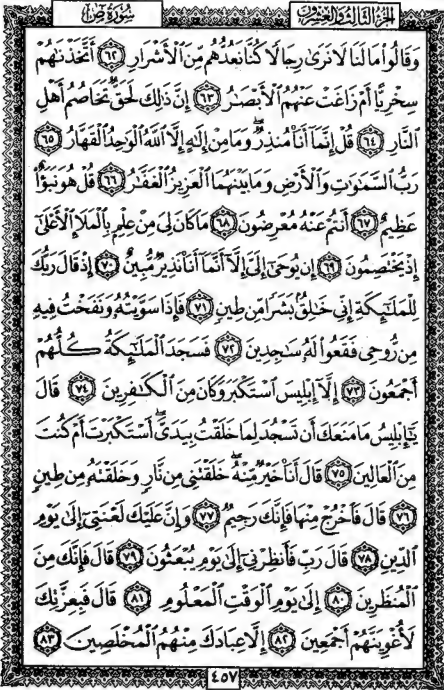 سُورَةُ صٓ الجُزْءُ الثَّالِثُ وَالعِشْرُونَ
وَقَالُوا۟ مَا لَنَا لَا نَرَىٰ رِجَالًا كُنَّا نَعُدُّهُم مِّنَ ٱلْأَشْرَارِ ٦٢ أَتَّخَذْنَٰهُمْ
سِخْرِيًّا أَمْ زَاغَتْ عَنْهُمُ ٱلْأَبْصَٰرُ ٦٣ إِنَّ ذَٰلِكَ لَحَقٌّ تَخَاصُمُ أَهْلِ
ٱلنَّارِ ٦٤ قُلْ إِنَّمَآ أَنَا۠ مُنذِرٌ ۖ وَمَا مِنْ إِلَٰهٍ إِلَّا ٱللَّهُ ٱلْوَٰحِدُ ٱلْقَهَّارُ ٦٥
رَبُّ ٱلسَّمَٰوَٰتِ وَٱلْأَرْضِ وَمَا بَيْنَهُمَا ٱلْعَزِيزُ ٱلْغَفَّٰرُ ٦٦ قُلْ هُوَ نَبَؤٌا۟
عَظِيمٌ ٦٧ أَنتُمْ عَنْهُ مُعْرِضُونَ ٦٨ مَا كَانَ لِىَ مِنْ عِلْمٍۭ بِٱلْمَلَإِ ٱلْأَعْلَىٰٓ
إِذْ يَخْتَصِمُونَ ٦٩ إِن يُوحَىٰٓ إِلَىَّ إِلَّآ أَنَّمَآ أَنَا۠ نَذِيرٌ مُّبِينٌ ٧٠ إِذْ قَالَ رَبُّكَ
لِلْمَلَٰٓئِكَةِ إِنِّى خَٰلِقٌۢ بَشَرًا مِّن طِينٍ ٧١ فَإِذَا سَوَّيْتُهُۥ وَنَفَخْتُ فِيهِ
مِن رُّوحِى فَقَعُوا۟ لَهُۥ سَٰجِدِينَ ٧٢ فَسَجَدَ ٱلْمَلَٰٓئِكَةُ كُلُّهُمْ
أَجْمَعُونَ ٧٣ إِلَّآ إِبْلِيسَ ٱسْتَكْبَرَ وَكَانَ مِنَ ٱلْكَٰفِرِينَ ٧٤ قَالَ
يَٰٓإِبْلِيسُ مَا مَنَعَكَ أَن تَسْجُدَ لِمَا خَلَقْتُ بِيَدَىَّ ۖ أَسْتَكْبَرْتَ أَمْ كُنتَ
مِنَ ٱلْعَالِينَ ٧٥ قَالَ أَنَا۠ خَيْرٌ مِّنْهُ ۖ خَلَقْتَنِى مِن نَّارٍ وَخَلَقْتَهُۥ مِن طِينٍ
٧٦ قَالَ فَٱخْرُجْ مِنْهَا فَإِنَّكَ رَجِيمٌ ٧٧ وَإِنَّ عَلَيْكَ لَعْنَتِىٓ إِلَىٰ يَوْمِ
ٱلدِّينِ ٧٨ قَالَ رَبِّ فَأَنظِرْنِىٓ إِلَىٰ يَوْمِ يُبْعَثُونَ ٧٩ قَالَ فَإِنَّكَ مِنَ
ٱلْمُنظَرِينَ ٨٠ إِلَىٰ يَوْمِ ٱلْوَقْتِ ٱلْمَعْلُومِ ٨١ قَالَ فَبِعِزَّتِكَ
لَأُغْوِيَنَّهُمْ أَجْمَعِينَ ٨٢ إِلَّا عِبَادَكَ مِنْهُمُ ٱلْمُخْلَصِينَ ٨٣
٤٥٧